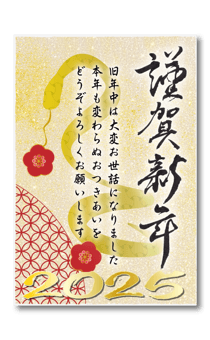 謹賀新年
旧年中は大変お世話になりました
本年も変わらぬおつきあいを
どうぞよろしくお願いします
2025